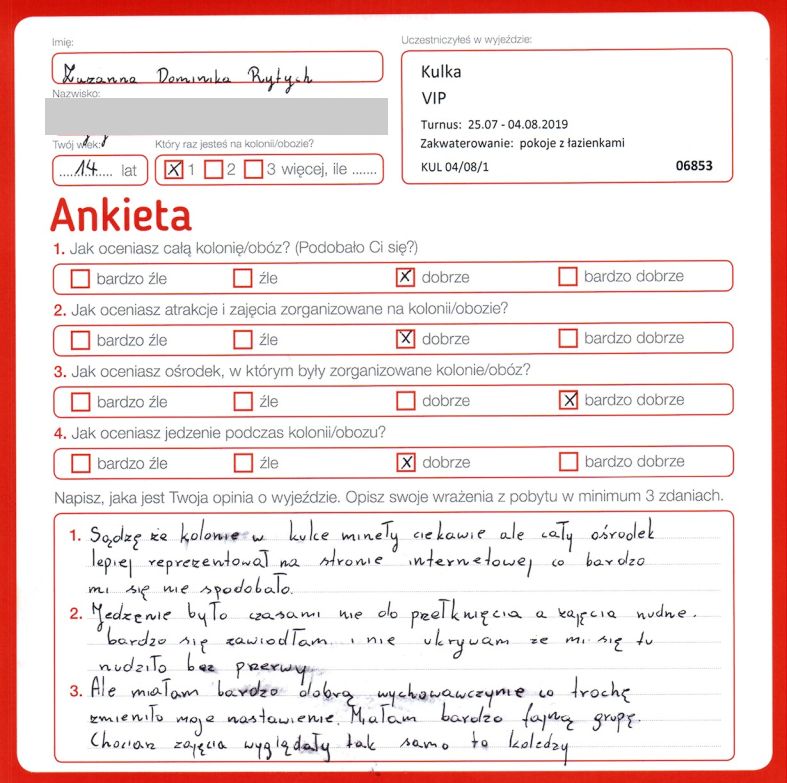 Imię:
Uczestniczyłeś w wyjeździe:
Zuzanna Dominika Rytych
Kulka
VIP
Nazwisko:
Turnus: 25.07 - 04.08.2019
Zakwaterowanie: pokoje z łazienkami
KUL 04/08/1 06853
Twój wiek: Który raz jesteś na kolonii/obozie?
14 lat X 1 2 3 więcej, ile .......
Ankieta
1. Jak oceniasz całą kolonię/obóz? (Podobało Ci się?)
bardzo źle źle X dobrze bardzo dobrze
2. Jak oceniasz atrakcje i zajęcia zorganizowane na kolonii/obozie?
bardzo źle źle X dobrze bardzo dobrze
3. Jak oceniasz ośrodek, w którym były zorganizowane kolonie/obóz?
bardzo źle źle dobrze X bardzo dobrze
4. Jak oceniasz jedzenie podczas kolonii/obozu?
bardzo źle źle X dobrze bardzo dobrze
Napisz, jaka jest Twoja opinia o wyjeździe. Opisz swoje wrażenia z pobytu w minimum 3 zdaniach.
1. Sądzę że kolonie w kulce minęły ciekawie ale cały ośrodek
lepiej reprezentował na stronie internetowej co bardzo
mi się nie spodobało.
2. Jedzenie było czasami nie do przełknięcia a zajęcia nudne.
bardzo się zawiodłam i nie ukrywam że mi się tu
nudziło bez przerwy
3. Ale miałam bardzo dobrą wychowawczynie co trochę
zmieniło moje nastawienie. Miałam bardzo fajną grupę.
Chociaż zajęcia wyglądały tak samo to koledzy